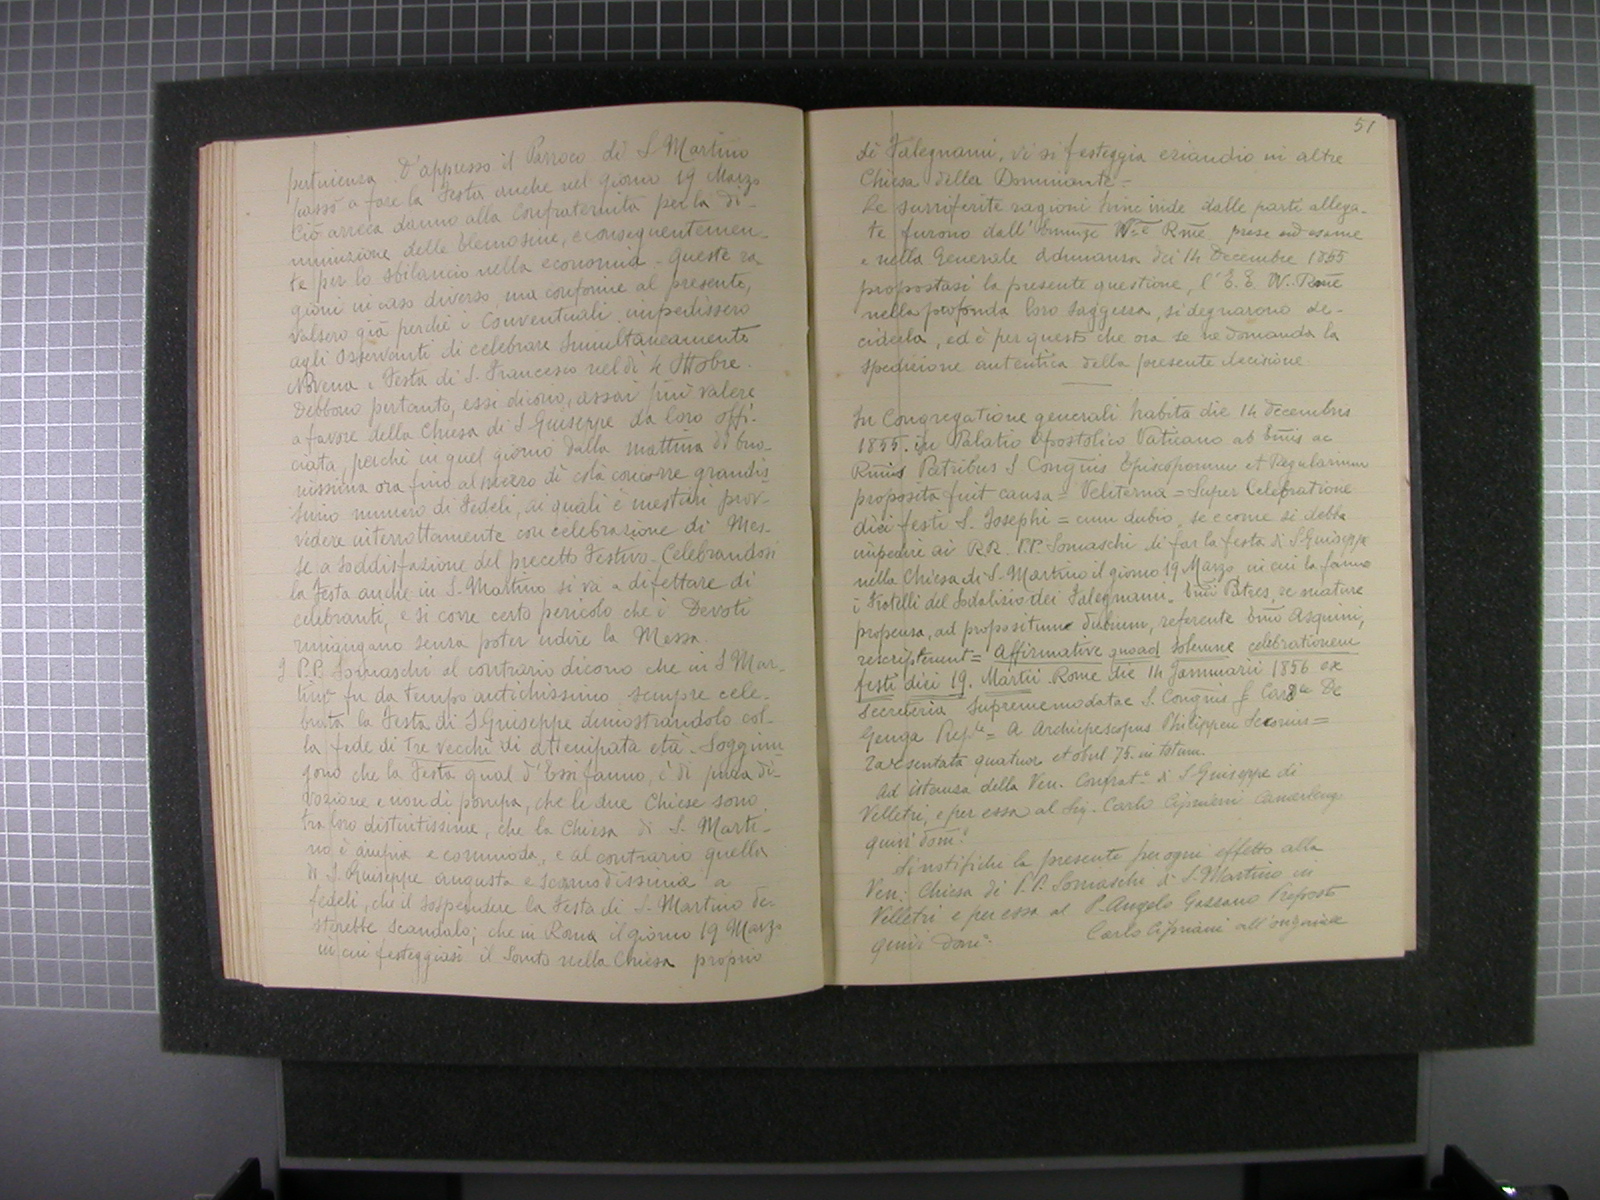 pertinenza. D'appresso il Parroco di S. Martino
passò a fare la Festa anche nel giorno 19 Marzo
Ciò arreca danno alla Confraternita per la di-
minuzione delle Elemosine, e conseguentemen-
te per lo sbilancio nella economia. Queste ra
gioni in caso diverso, ma conforme al presente,
valsero già perché i Conventuali impedissero
agli Osservanti di celebrare simultaneamente
Novena e Festa di S. Francesco nel dì 4 Ottobre.
Debbono pertanto, essi dicono, assai più valere
a favore della Chiesa di S. Giuseppe da loro offi-
ciata, perché in quel giorno dalla mattina di buo-
nissima ora fino al mezzo dì colà concorre grandis
simo numero di Fedeli, ai quali è mestieri prov-
vedere interrottamente con celebrazione di Mes-
se a soddisfazione del precetto Festivo. Celebrandosi
la Festa anche in S. Martino si va a difettare di
celebranti, e si corre certo pericolo che i Devoti
rimangano senza poter udire la Messa.
I P.P. Somaschi al contrario dicono che in S. Mar-
tino fu da tempo antichissimo sempre cele-
brata la Festa di S. Giuseppe dimostrandolo col-
la fede di tre vecchi di attempata età. Soggiun
gono che la Festa qual d'Essi fanno, è di pura di-
vozione e non di pompa, che le due Chiese sono
tra loro distintissime, che la Chiesa di S. Marti-
no è ampia e commoda, e al contrario quella
di S. Giuseppe angusta e scomodissima a
fedeli, che il sospendere la Festa di S. Martino de-
sterebbe scandalo; che in Roma il giorno 19 Marzo
in cui festeggiasi il Santo nella Chiesa proprio
51
di Falegnami, vi si festeggia eziandio in altre
Chiesa della Dominante =
Le surriferite ragioni hinc inde dalle parti allega-
te furono dall' W.e Rme prese ad esame
e nella Generale adunanza dei 14 Decembre 1855
propostasi la presente questione, l'E.E. W. Rme
nella profonda loro saggezza, si degnarono de-
ciderla, ed è per questo che ora se ne domanda la
spedizione autentica della presente decisione.
In Congregatione generali habita die 14 decembris
1855. in Palatio Apostolico Vaticano ab Emis ac
Rmis Patribus S. Congnis Episcoporum et Regularium
proposita fuit causa = Veliterna = Super Celebratione
diei festi S. Josephi = cum dubio, se e come si debba
impedire ai RR. P.P. Somaschi di far la festa di S. Giuseppe
nella Chiesa di S. Martino il giorno 19 Marzo, in cui la fanno
i Fratelli del Sodalizio dei Falegnami. Emi Patres, re mature
propensa, ad propositum dubium, referente Emo Asquini,
rescripserunt = Affirmative quoad solemne celebrationem
festi diei 19. Martii. Rome die 14 Jannuarii 1856 ex
secreteria supramemodatae S. Congnis
Genga = A Archiepiscopus Philippen
quatuor et obul 75. in totum.
Ad istanza della Ven. Confrat.a di S. Giuseppe di
Velletri, e per essa al Sig. Carlo Cipriani Camerlengo
quivi dom.o
Si notifichi la presente per ogni effetto alla
Ven: Chiesa di P.P. Somaschi di S. Martino in
Velletri e per essa al P. Angelo Gassano Preposto
quivi dom.o
Carlo Cipriani all'originale